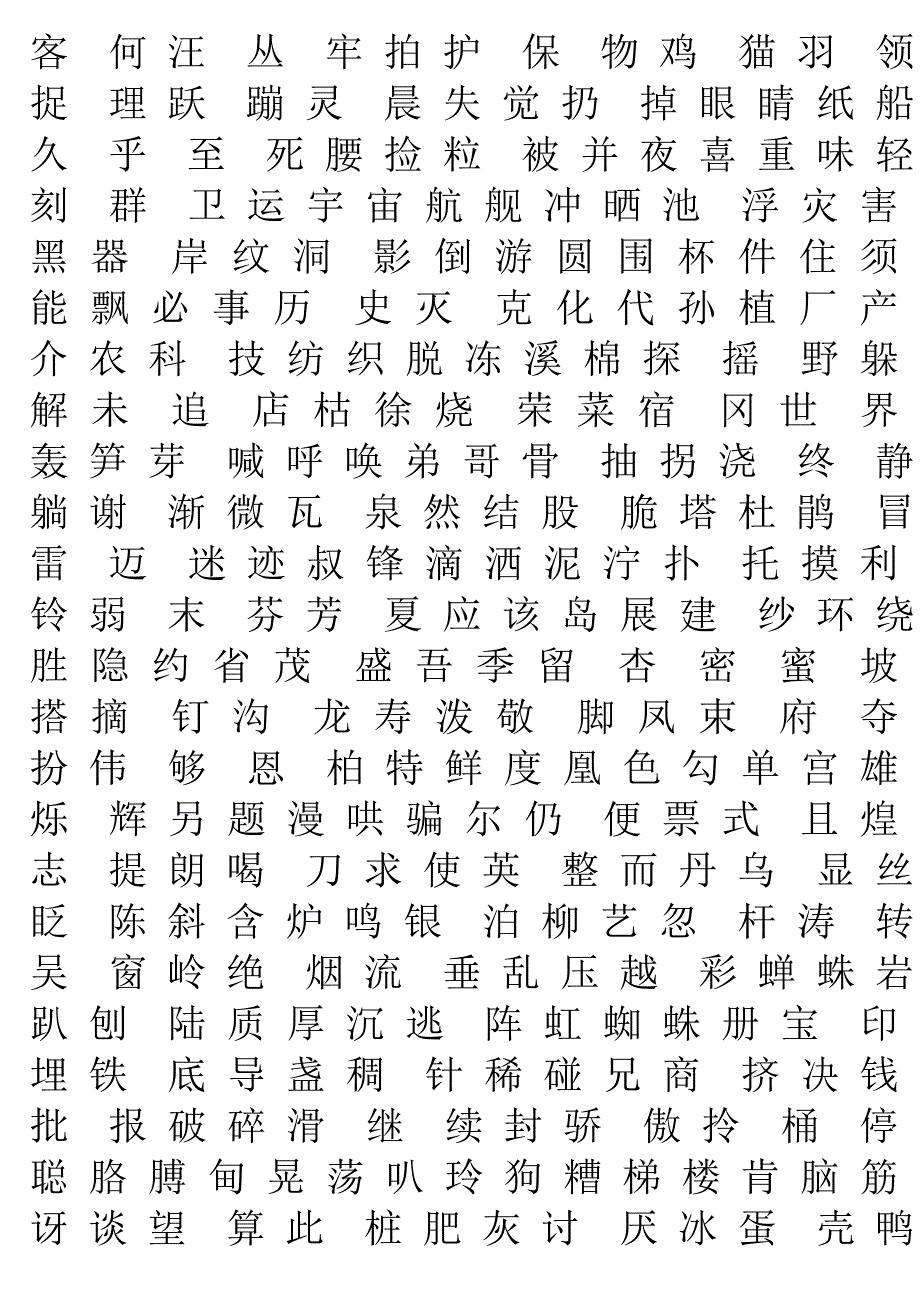 客 何 汪 丛 牢 拍 护 保 物 鸡 猫 羽 领
捉 理 跃 蹦 灵 晨 失 觉 扔 掉 眼 睛 纸 船
久 乎 至 死 腰 捡 粒 被 并 夜 喜 重 味 轻
刻 群 卫 运 宇 宙 航 舰 冲 晒 池 浮 灾 害
黑 器 岸 纹 洞 影 倒 游 圆 围 杯 件 住 须
能 飘 必 事 历 史 灭 克 化 代 孙 植 厂 产
介 农 科 技 纺 织 脱 冻 溪 棉 探 摇 野 躲
解 未 追 店 枯 徐 烧 荣 菜 宿 冈 世 界
轰 笋 芽 喊 呼 唤 弟 哥 骨 抽 拐 浇 终 静
躺 谢 渐 微 瓦 泉 然 结 股 脆 塔 杜 鹃 冒
雷 迈 迷 迹 叔 锋 滴 洒 泥 泞 扑 托 摸 利
铃 弱 末 芬 芳 夏 应 该 岛 展 建 纱 环 绕
胜 隐 约 省 茂 盛 吾 季 留 杏 密 蜜 坡
搭 摘 钉 沟 龙 寿 泼 敬 脚 凤 束 府 夺
扮 伟 够 恩 柏 特 鲜 度 凰 色 勾 单 宫 雄
烁 辉 另 题 漫 哄 骗 尔 仍 便 票 式 且 煌
志 提 朗 喝 刀 求 使 英 整 而 丹 乌 显 丝
眨 陈 斜 含 炉 鸣 银 泊 柳 艺 忽 杆 涛 转
吴 窗 岭 绝 烟 流 垂 乱 压 越 彩 蝉 蛛 岩
趴 刨 陆 质 厚 沉 逃 阵 虹 蜘 蛛 册 宝 印
埋 铁 底 导 盏 稠 针 稀 碰 兄 商 挤 决 钱
批 报 破 碎 滑 继 续 封 骄 傲 拎 桶 停
聪 胳 膊 甸 晃 荡 叭 玲 狗 糟 梯 楼 肯 脑 筋
讶 谈 望 算 此 桩 肥 灰 讨 厌 冰 蛋 壳 鸭